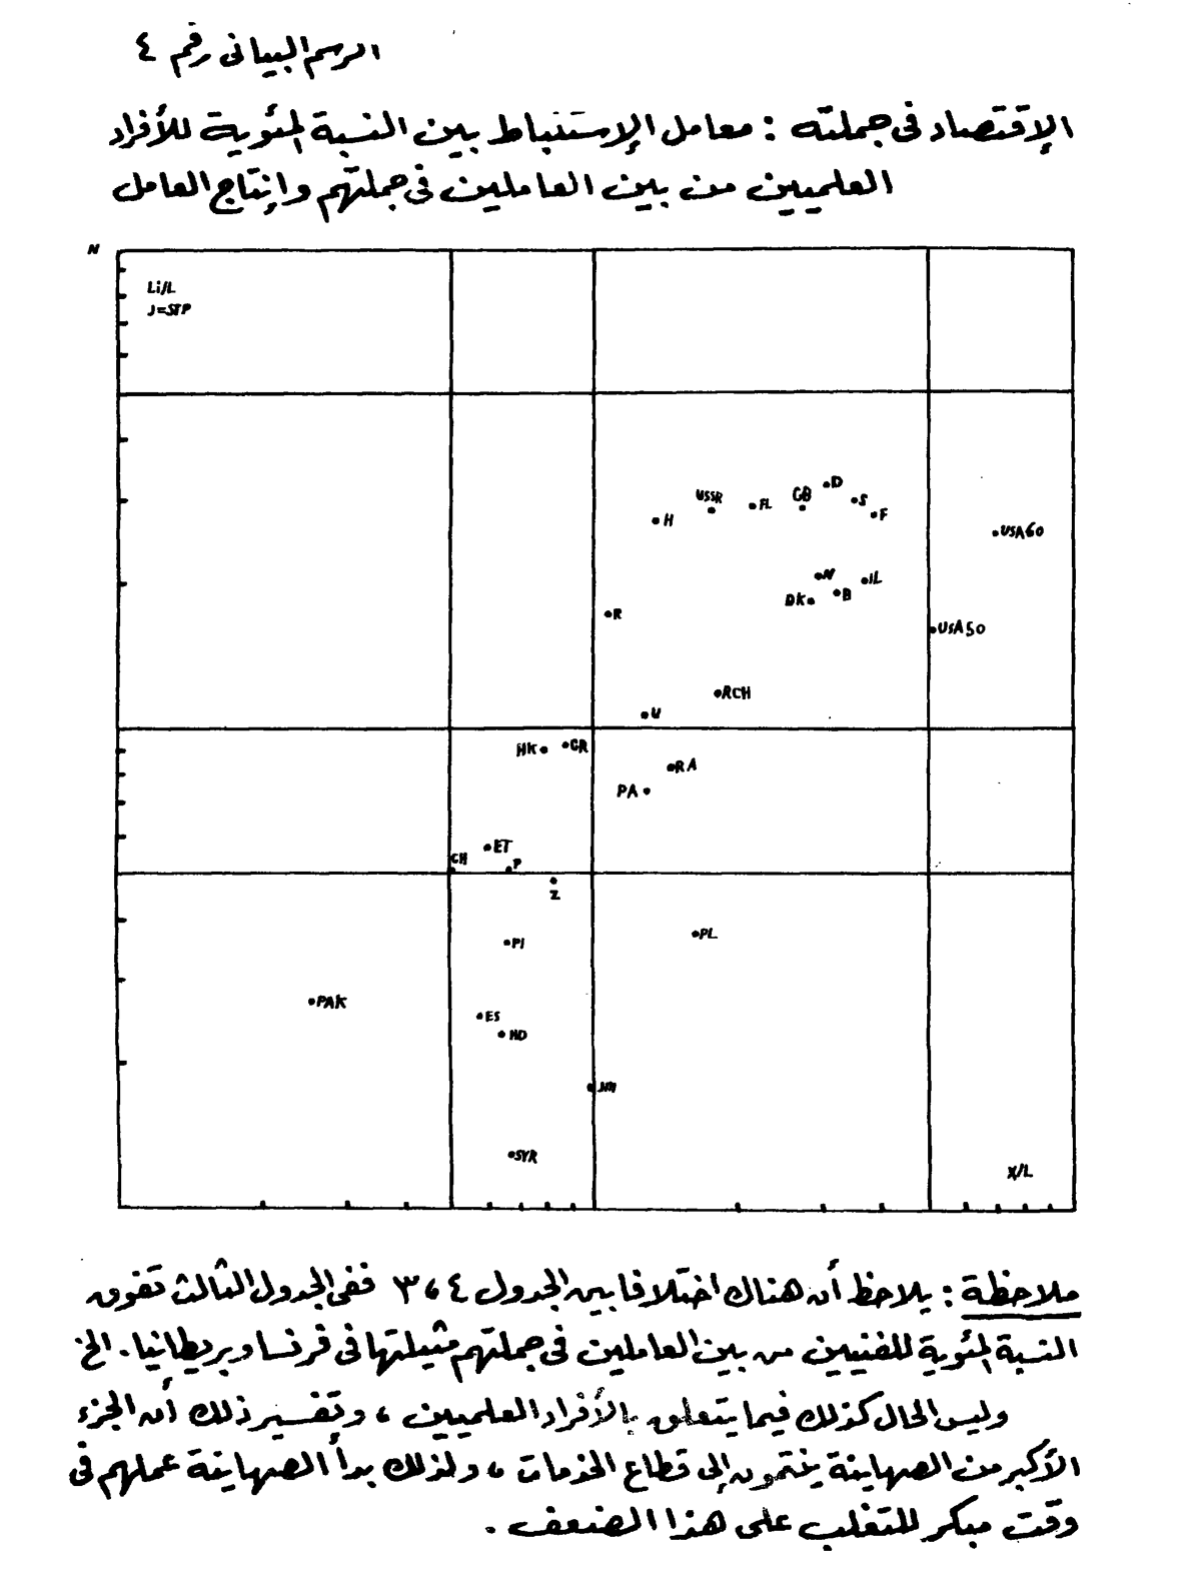 الرسم البياني رقم ٤
الإقتصاد في جملته : معامل الإستنباط بين النسبة المئوية للأفراد
العلميين من بين العاملين في جملتهم وإنتاج العامل
N
Li/L
J=STP
D
USSR
GB
S
FL
F
H
USA60
N
IL
B
DK
R
USA50
RCH
U
HK
GR
RA
PA
ET
CH
P
Z
PL
PI
PAK
ES
HD
JM
SYR
X/L
ملاحظة : يلاحظ أن هناك اختلافا بين الجدول ٤ ، ٣ ففي الجدول الثالث تفوق
النسبة المئوية للفنيين من بين العاملين في جملتهم مثيلتها في فرنسا وبريطانيا . الخ
وليس الحال كذلك فيما يتعلق بالأفراد العلميين ، وتفسير ذلك أن الجزء
الأكبر من الصهاينة ينتمون إلى قطاع الخدمات ، ولذلك بدأ الصهاينة عملهم في
وقت مبكر للتغلب على هذا الضعف .